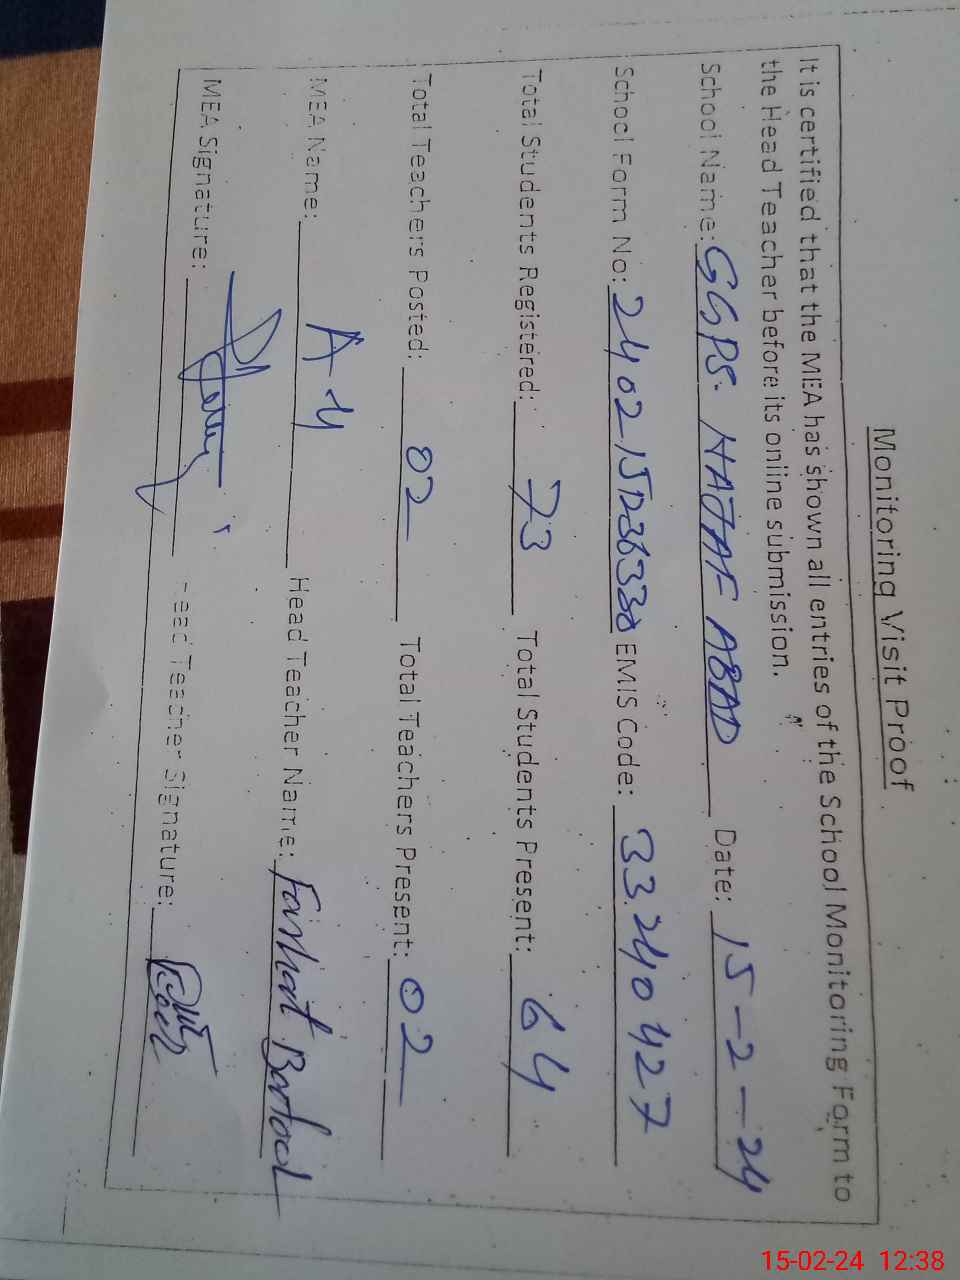 Monitoring Visit Proof
It is certified that the MEA has shown all entries of the School Monitoring Form to
the Head Teacher before its online submission.
School Name: GGPS. NAJAF ABAD Date: 15-2-24
School Form No: 240215D36330 EMIS Code: 33240427
Total Students Registered: 73 Total Students Present: 64
Total Teachers Posted: 02 Total Teachers Present: 02
MEA Name: A-4 Head Teacher Name: Farhat Batool
MEA Signature: Head Teacher Signature:
15-02-24 12:38